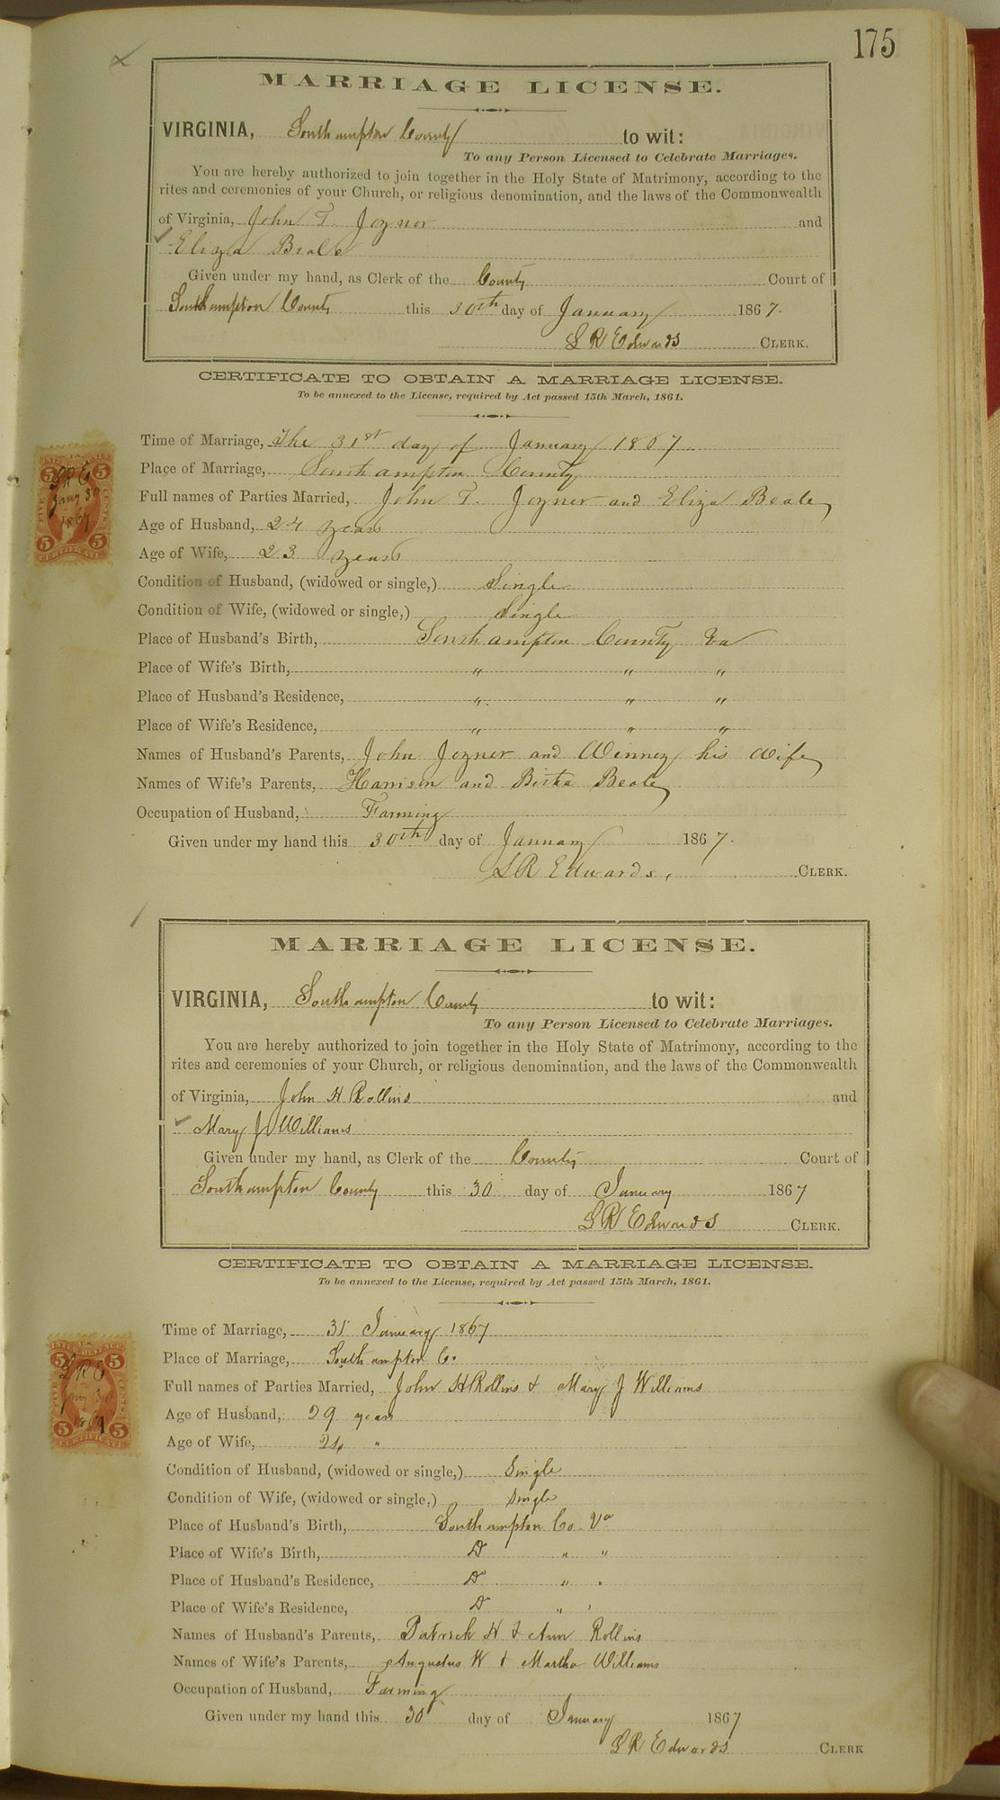 175
MARRIAGE LICENSE.
VIRGINIA, Southampton County to wit:
To any Person Licensed to Celebrate Marriages.
You are hereby authorized to join together in the Holy State of Matrimony, according to the
rites and ceremonies of your Church, or religious denomination, and the laws of the Commonwealth
of Virginia, John T. Joyner and
Eliza Beale
Given under my hand, as Clerk of the County Court of
Southampton County this 30th day of January 1867.
L R Edwards CLERK.
CERTIFICATE TO OBTAIN A MARRIAGE LICENSE.
To be annexed to the License, required by Act passed 15th March, 1861.
Time of Marriage, The 31st day of January 1867
Place of Marriage, Southampton County
Full names of Parties Married, John T. Joyner and Eliza Beale
Age of Husband, 24 years
Age of Wife, 23 years
Condition of Husband, (widowed or single,) Single
Condition of Wife, (widowed or single,) Single
Place of Husband's Birth, Southampton County Va
Place of Wife's Birth, " " "
Place of Husband's Residence, " " "
Place of Wife's Residence, " " "
Names of Husband's Parents, John Joyner and Winney his wife
Names of Wife's Parents, Harrison and Beale
Occupation of Husband, Farming
Given under my hand this 30th day of January 1867.
L R Edwards, CLERK.
FIVE CENTS
CERTIFICATE
5 5 5 5
L R E
Jany 30
1867
MARRIAGE LICENSE.
VIRGINIA, Southampton County to wit:
To any Person Licensed to Celebrate Marriages.
You are hereby authorized to join together in the Holy State of Matrimony, according to the
rites and ceremonies of your Church, or religious denomination, and the laws of the Commonwealth
of Virginia, John H Rollins and
Mary J Williams
Given under my hand, as Clerk of the County Court of
Southampton County this 30 day of January 1867
L R Edwards CLERK.
CERTIFICATE TO OBTAIN A MARRIAGE LICENSE.
To be annexed to the License, required by Act passed 15th March, 1861.
Time of Marriage, 31 January 1867
Place of Marriage, Southampton Co.
Full names of Parties Married, John H Rollins & Mary J Williams
Age of Husband, 29 years
Age of Wife, 24 "
Condition of Husband, (widowed or single,) Single
Condition of Wife, (widowed or single,) Single
Place of Husband's Birth, Southampton Co. Va
Place of Wife's Birth, Do " "
Place of Husband's Residence, Do " "
Place of Wife's Residence, Do " "
Names of Husband's Parents, Patrick H & Ann Rollins
Names of Wife's Parents, Augustus W & Martha Williams
Occupation of Husband, Farming
Given under my hand this 30 day of January 1867
L R Edwards CLERK
5 5 5 5
L R E
Jany 30
1867